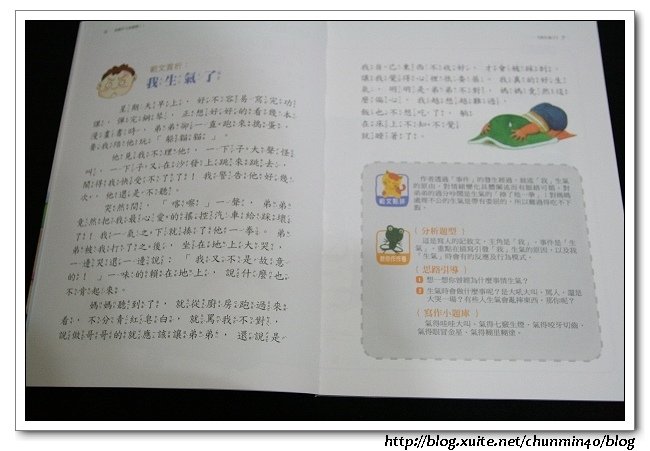 範文賞析：
我生氣了
星期天早上，好不容易寫完功
課，彈完鋼琴，正想好好的看幾本
漫畫書時，弟弟卻一直跑來搗蛋，
要我陪他玩「躲貓貓」。
他見我不理他，一下子大聲怪
叫，一下子又在沙發上跳來跳去，
鬧得我快受不了了！我警告他好幾
次，他還是不聽。
突然間，「喀嚓」一聲，弟弟
竟然把我最心愛的搖控汽車給踩壞
了！我一氣之下就揍了他一拳。弟
弟被我打了之後，坐在地上大哭，
一邊哭還一邊說：「我又不是故意
的！」一味的賴在地上，說什麼也
不肯起來。
媽媽聽到了，就從廚房跑過來
看，不分青紅皂白，就罵我不對，
說做哥哥的就應該讓弟弟，還說是
我自己東西不收好，才會被踩到，
讓我覺得心裡很委屈。我真的好生
氣，明明是弟弟不對，媽媽竟然這
麼偏心，我越想越難過，
飯也不想吃了，躺
在床上不知不覺
就睡著了。
範文點評
作者透過「事件」的發生經過，敘述「我」生氣
的原由，對情緒變化具體闡述而有脈絡可循。對
弟弟的過分時間是生氣的「揍了他一拳」；對媽媽
處理不公的生氣是帶有委屈的，所以難過得吃不下
飯。
教你作作看
〔分析題型〕
這是寫人的記敘文，主角是「我」，事件是「生
氣」，重點在描寫引發「我」生氣的原因，以及我
「生氣」時會有的反應及行為模式。
〔思路引導〕
1 想一想你曾經為什麼事情生氣？
2 生氣時會做什麼事呢？是大吼大叫、罵人，還是
大哭一場？有些人生氣會亂摔東西，那你呢？
〔寫作小題庫〕
氣得哇哇大叫、氣得七竅生煙、氣得咬牙切齒、
氣得眼冒金星、氣得糊里糊塗。
http://blog.xuite.net/chunmin40/blog